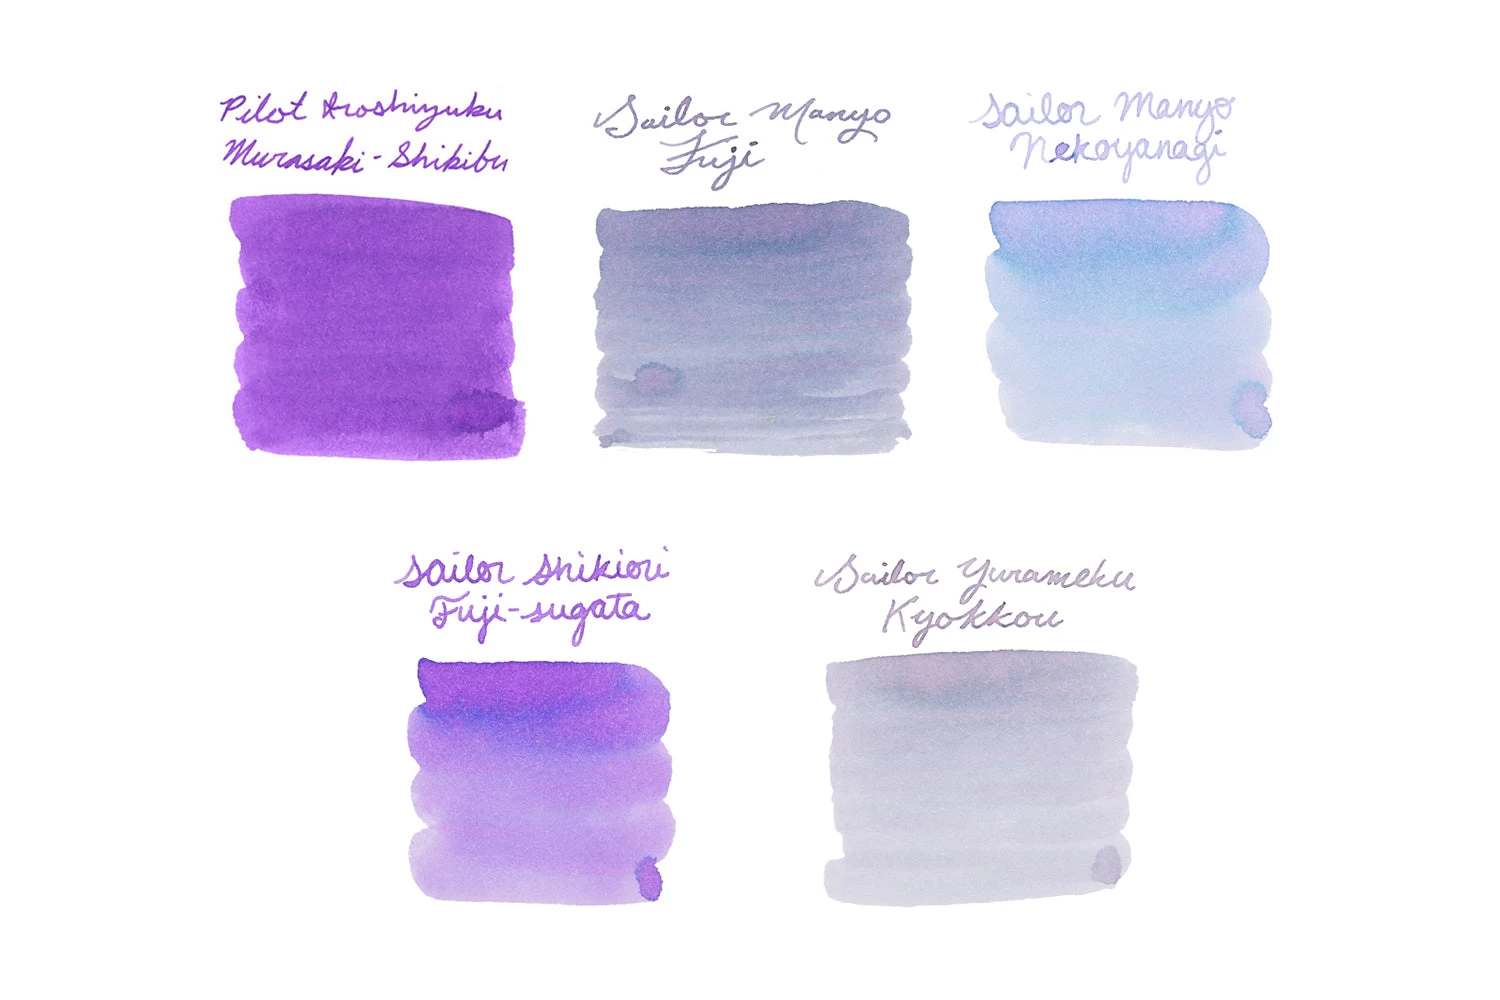 Pilot Iroshizuku
Murasaki-Shikibu
Sailor Manyo
Fuji
Sailor Manyo
Nekoyanagi
Sailor Shikiori
Fuji-sugata
Sailor Yurameku
Kyokkou